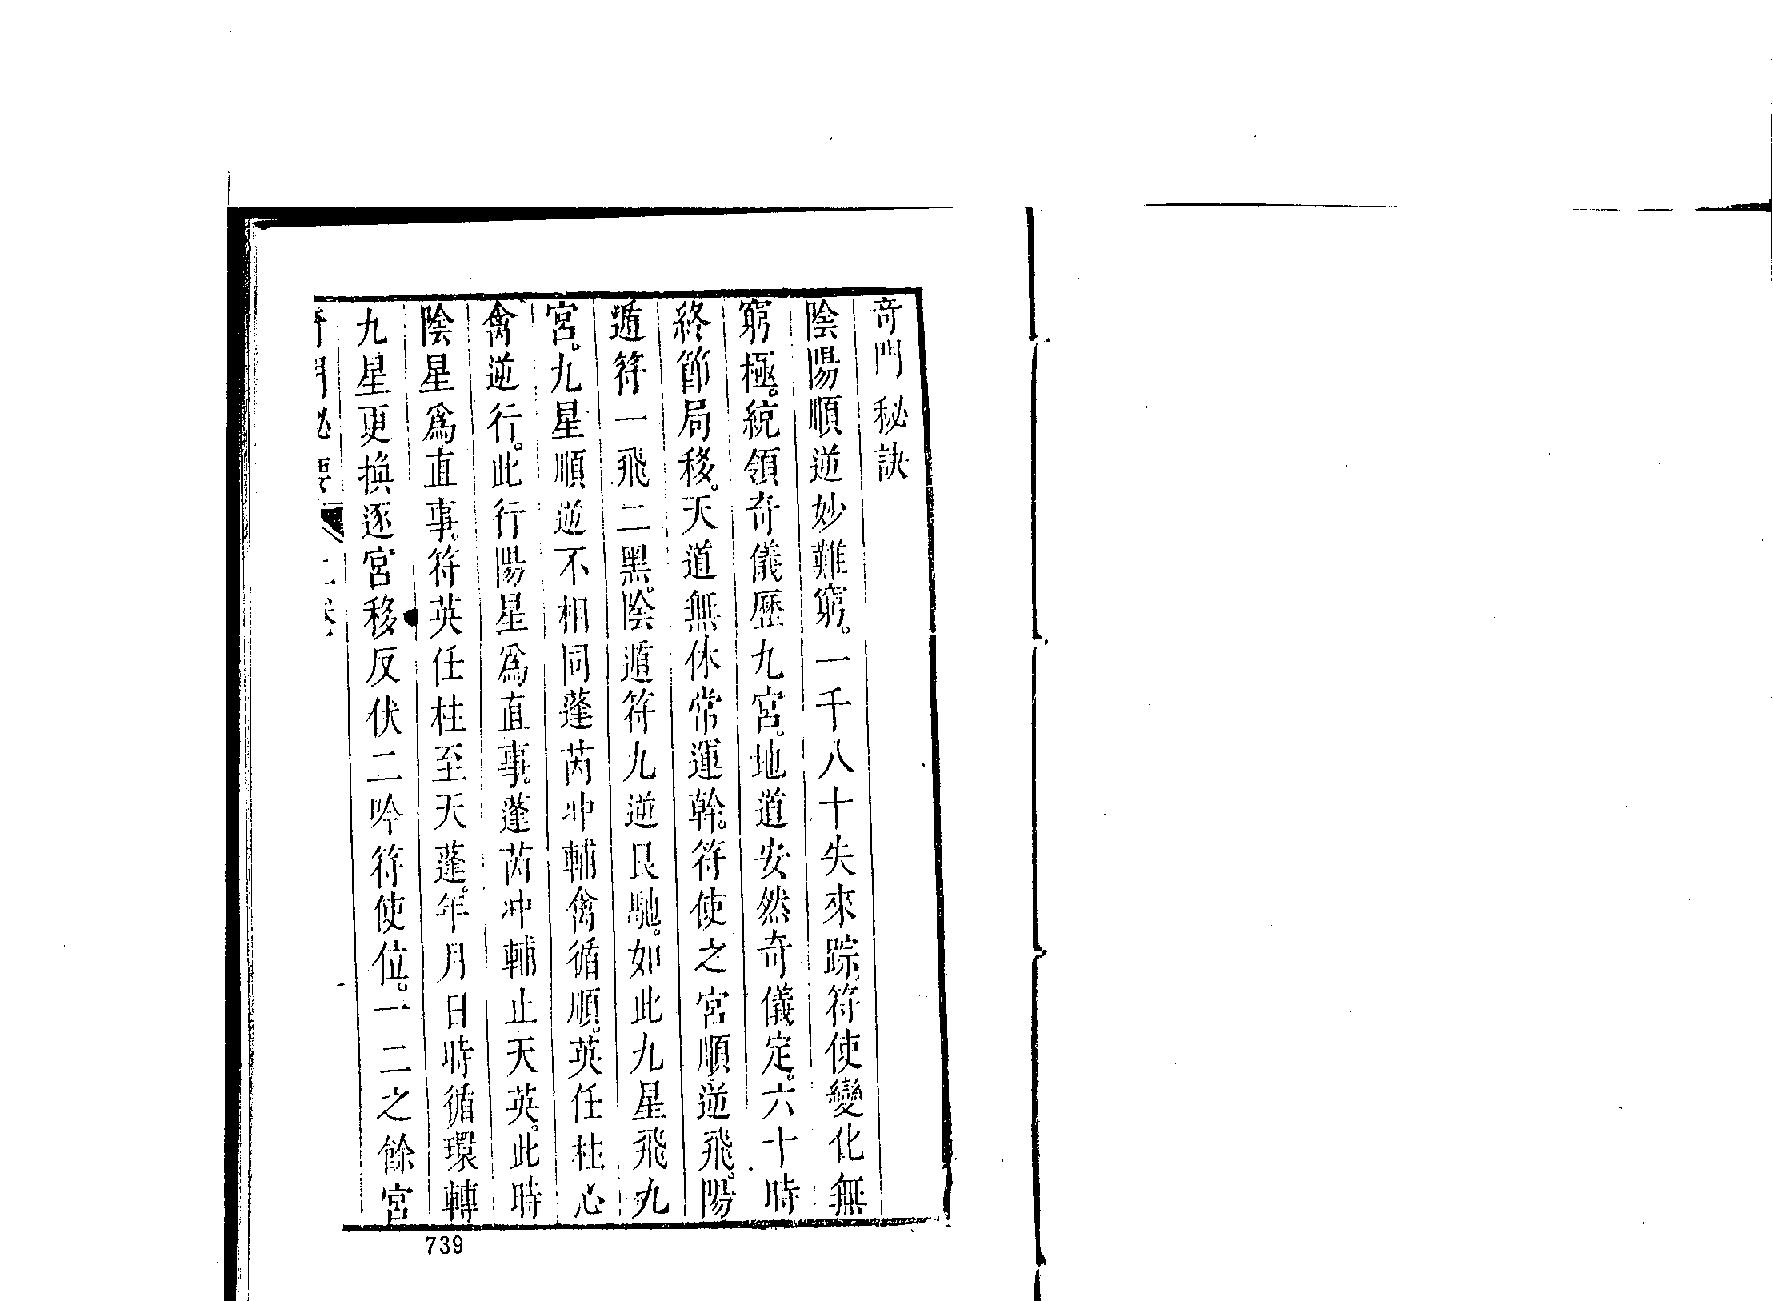 奇門秘訣
陰陽順逆妙難窮。一千八十失來踪符使變化無
窮極。統領奇儀歷九宮。地道安然奇儀定。六十時
終節局移。天道無休常運幹。符使之宮順逆飛。陽
遁符一飛二黑。陰遁符九逆艮馳。如此九星飛九
宮。九星順逆不相同蓬芮冲輔禽循順。英任柱心
禽逆行。此行陽星爲直事。蓬芮冲輔止天英。此時
陰星爲直事。符英任柱至天蓬。年月日時循環轉
九星更換逐宮移反伏二吟符使位。一二之餘宮
奇門秘要
739